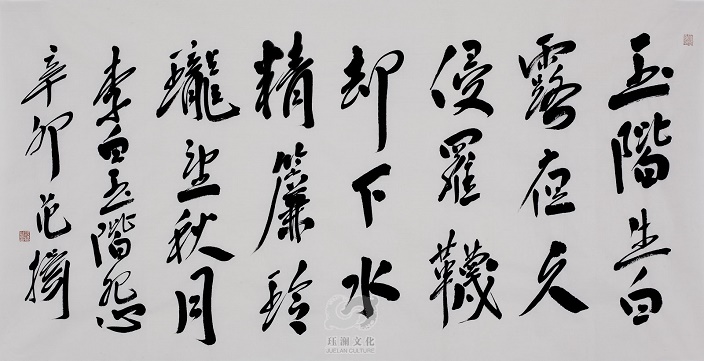 玉階生白
露夜久
侵羅韈
却下水
精簾玲
瓏望秋月
李白玉階怨
辛卯范
珏澜文化
JUELAN CULTURE